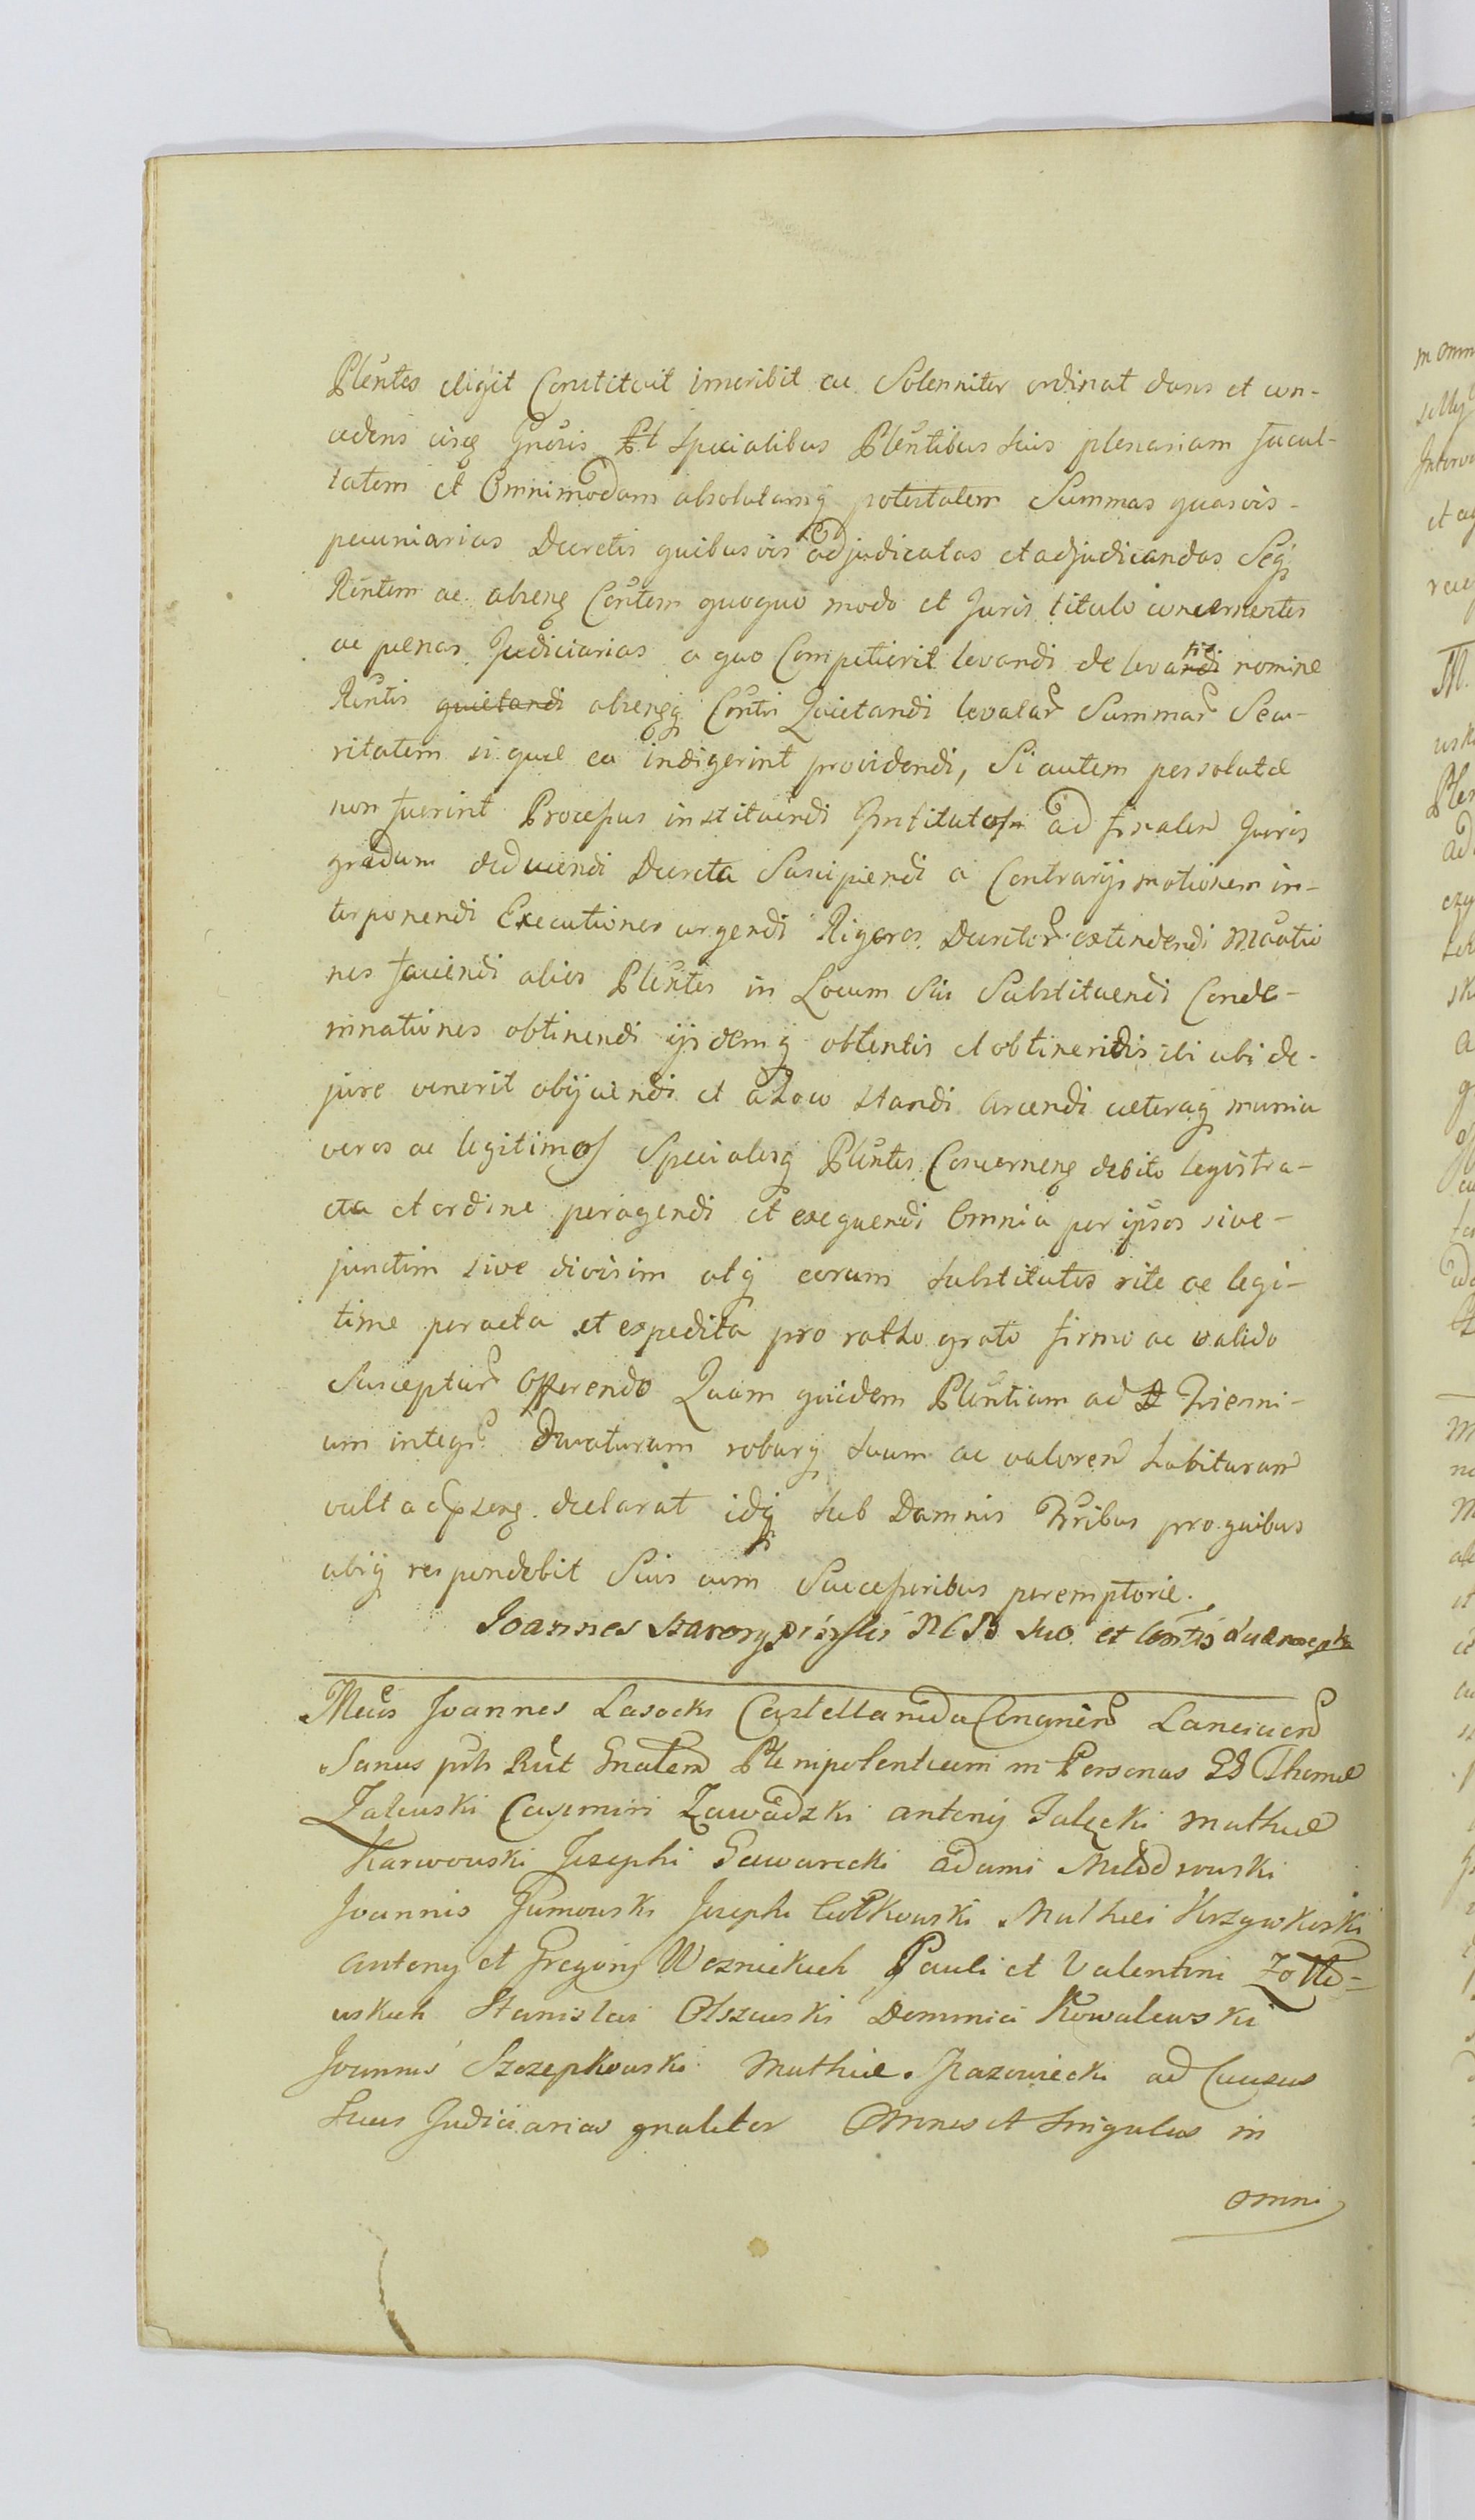 Plēntes eligit Constituit inscribit ac Solenniter ordinat dans et con-
cedens eisq Gnōris Et Specialibus Plēntibus suis plenariam facul-
tatem et Omnimodam absolutamq potestatem Summas quasvis -
pecuniarias Decretis quibusvis adjudicatas et adjudicandas Seq
Rēntem ac absenq Cōntem quoquo modo et Juris titulo concernentes
ac penas Judiciarias a quo Competierit levandi de levandi ne nomine
Rēntis quietandi absenq Cōntis Quietandi levatar Summar Secu-
ritatem si quae ea indigerint providendi, Si autem persolutae
non fuerint Processus instituendi Institutos ad finalem Juris
gradum deducendi Decreta Suscipiendi a Contrarijs motionem in-
terponendi Executiones urgendi Rigores Decretor extendendi Mōtio
nes faciendi alios Plēntes in Locum Sui Substituendi Conde-
mnationes obtinendi ijsdemq obtentis et obtinendis ibi ubi de-
jure venerit obijciendi et a Loco Standi Arcendi caeteraq munia
veros ac legitimos Specialesq Plēntes Concernenq debito legis tra-
ctu et ordine peragendi et exequendi Omnia per ipsos sive-
junctim sive divisim atq eorum substitutos rite ac legi-
time peracta et expedita pro ratho grato firmo ac valido
Susceptur Offerendo Quam quidem Plēntiam ad Trienni-
um integr Duraturam roburq suum ac valorem habituram
vult ac pseng declarat idq sub Damnis Tribus pro quibus
ubiq respondebit Suis cum Successoribus peremptorie.
Joannes NCB suo et Cōntis
Mcūs Joannes Lasocki Castellanida Conanien Lanciciens
Sanus pth Rūt Gnalem Plenipotentiam in Personas GD Thomae
Zaleuski Casimiri Zawadzki Antonij Falęcki Mathiae
Karwouski Josephi Gawarecki Adami Modrouski
Joannis Gumouski Josephi Ciołkouski Mathei Krzywkoski
Antonij et Gregorij Woznickich Pauli et Valentini Zołto-
uskich Stanislai Olszeuski Dominici Kowalewski
Joannis Szczepkouski Mathiae Kazowiecki ad Causas
Suas Judiciarias gnaliter Omnes et Singulas in
omni